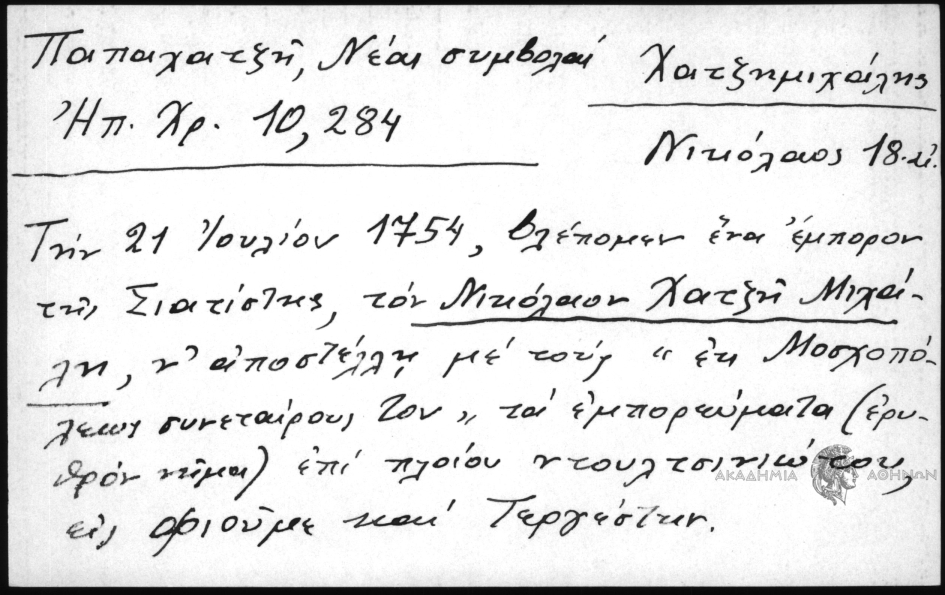 Παπαχατζῆ, Νέαι συμβολαί
Ἠπ. Χρ. 10, 284
Χατζημιχάλης
Νικόλαος 18. αἰ.
Τήν 21 Ἰουλίου 1754, βλέπομεν ἕνα ἔμπορον
τῆς Σιατίστης, τόν Νικόλαον Χατζῆ Μιχά-
λη, ν' ἀποστέλλῃ μέ τούς " ἐκ Μοσχοπό-
λεως συνεταίρους του " τά ἐμπορεύματα (ἐρυ-
θρόν νῆμα) ἐπί πλοίου ντουλτσινιώτου,
εἰς Φιοῦμε καί Τεργέστην.
ΑΚΑΔΗΜΙΑ ΑΘΗΝΩΝ